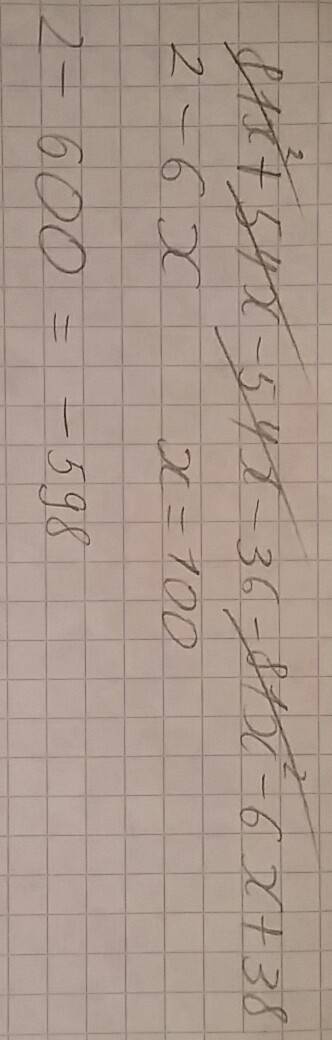 81x² + 54x - 54x - 36 - 81x² - 6x + 38
2 - 6x x = 100
2 - 600 = -598